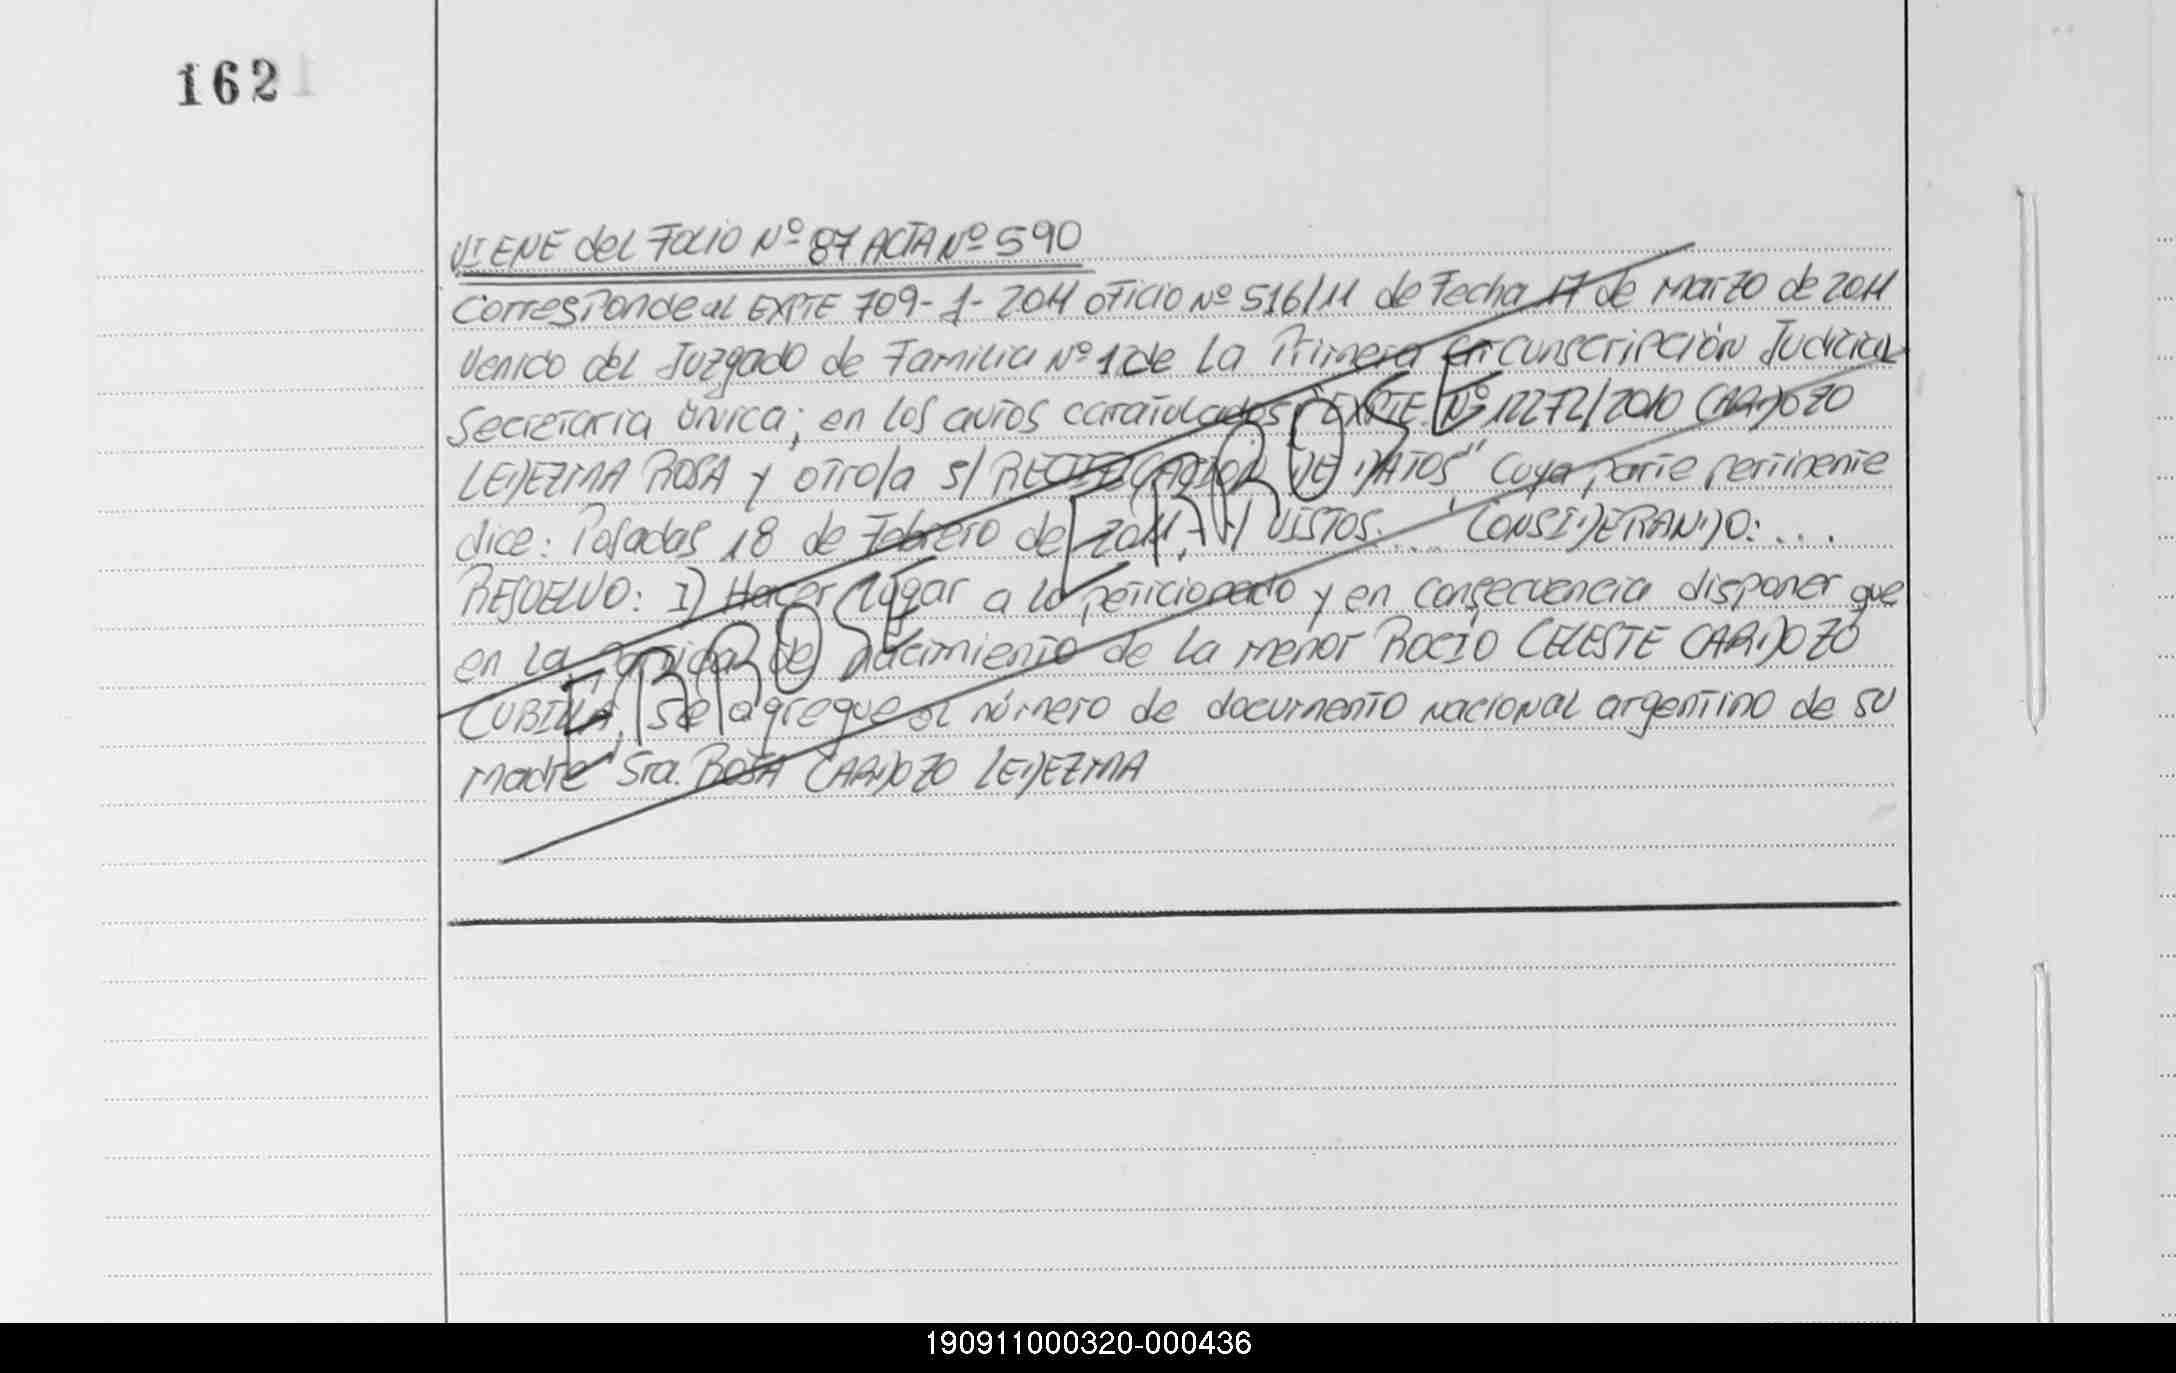 162
VIENE del Folio Nº 87 ACTA Nº 590
Corresponde al EXPTE 709-1-2011 oficio Nº 516/11 de Fecha 17 de Marzo de 2011
venido del Juzgado de Familia Nº 1 de La Primera Circunscripción Judicial
Secretaria Única; en los autos caratulados "EXPTE. Nº 12272/2010 CARDOZO
LEDEZMA ROSA y otro/a s/ RECTIFICACION DE DATOS" Cuya parte pertinente
dice: Posadas 18 de Febrero de 2011.- Y VISTOS:... CONSIDERANDO:...
RESUELVO: I) Hacer lugar a lo peticionado y en consecuencia disponer que
en la partida de nacimiento de la menor ROCIO CELESTE CARDOZO
CUBILLA, se agregue el número de documento nacional argentino de su
madre Sra. ROSA CARDOZO LEDEZMA
ERROSE
ERROSE
190911000320-000436